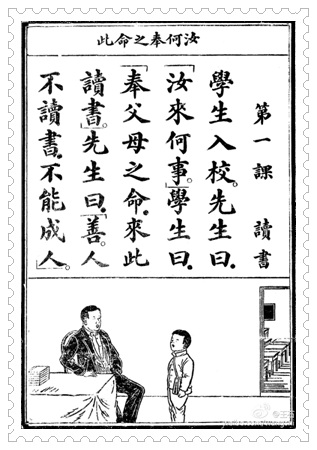 汝何奉之命此
第一課 讀書
學生入校。先生曰.
「汝來何事。」學生曰.
「奉父母之命.來此
讀書。」先生曰.「善。人
不讀書.不能成人。」